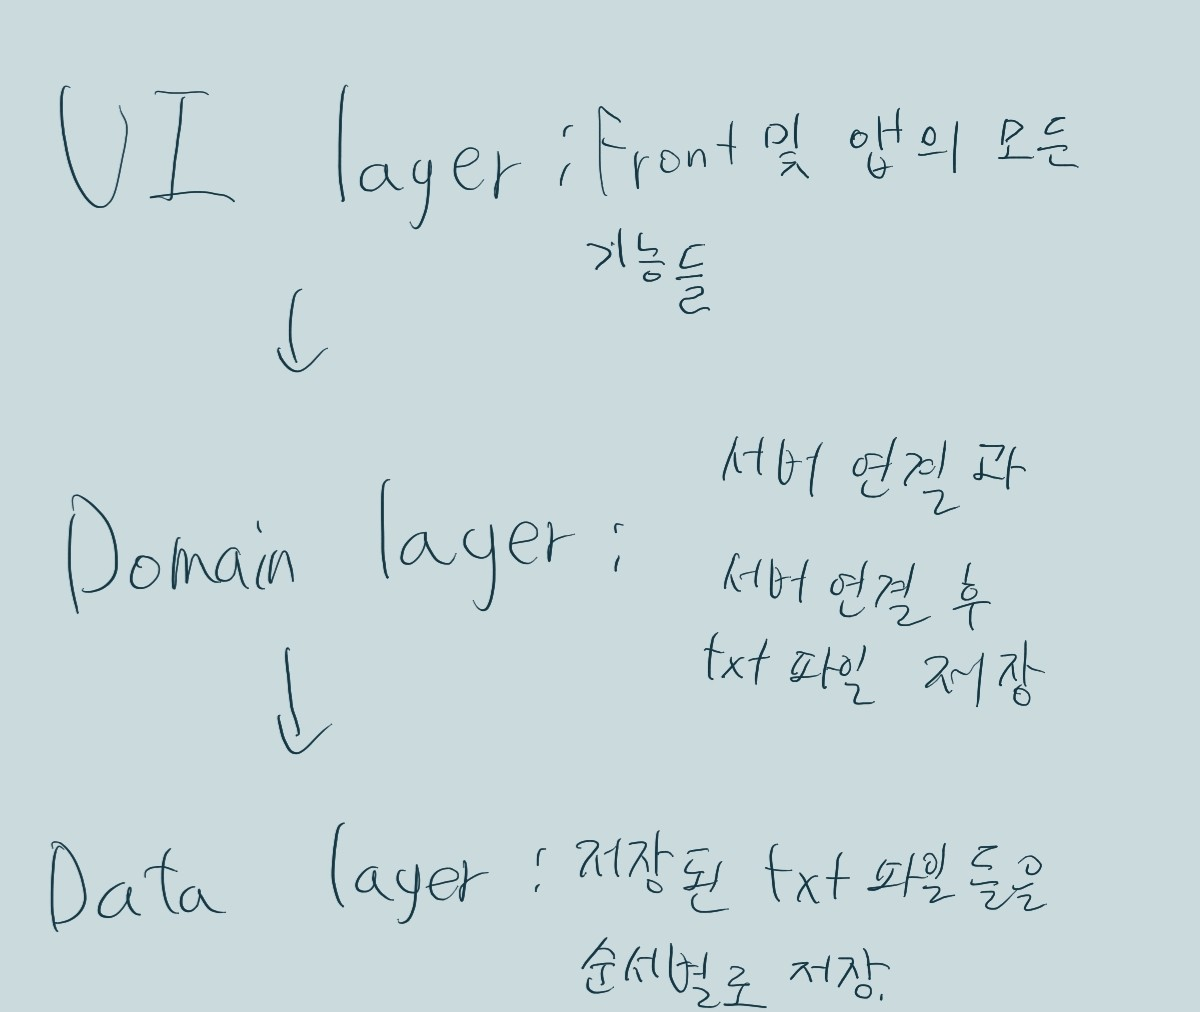 UI layer : Front 및 앱의 모든
기능들
서버 연결과
Domain layer :
서버 연결 후
txt 파일 저장
Data layer : 저장된 txt 파일들을
순서별로 저장.